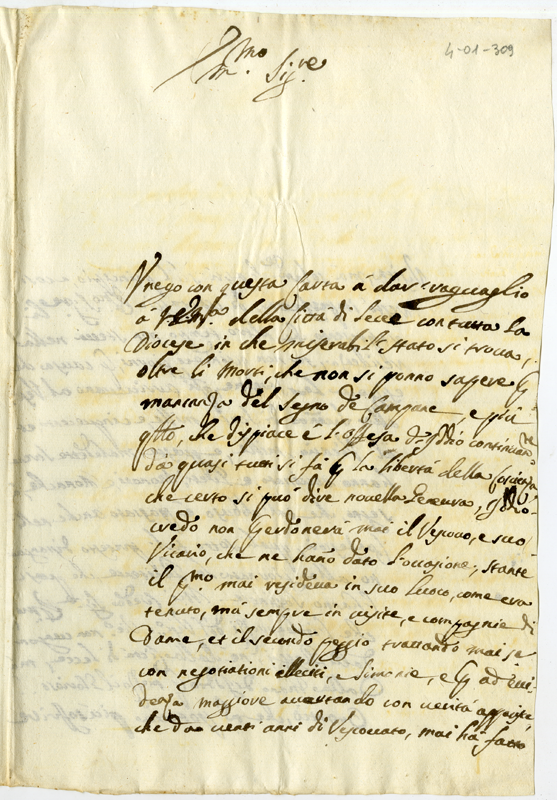 4-01-309
Ill.mo Sig.re
Vengo con questa Carta á dar raguaglio
á V.S. Ill.ma della Città di Lecce con tutta la
Diocese in che miserabil.e stato si trova,
oltre li morti, che non si ponno sapere p
mancanza del segno de Campane e più
q.llo, che dispiace é l'offesa d'Iddio continuam.te
da quasi tutti si fá p la libertá della
che certo si può dire novella Iddio
credo non perdonerà mai il Vescovo, e suo
Vicario, che ne hano dato l'occasione, stante
il p.mo mai resideva in suo luoco, come era
tenuto, má sempre in visite, e compagnie di
Dame, et il secondo peggio trattando mai se
con negotiationi illeciti, e simonie, e p ad evi
denza maggiore accertando con verità
che da venti anni di Vescovato, mai há fatto